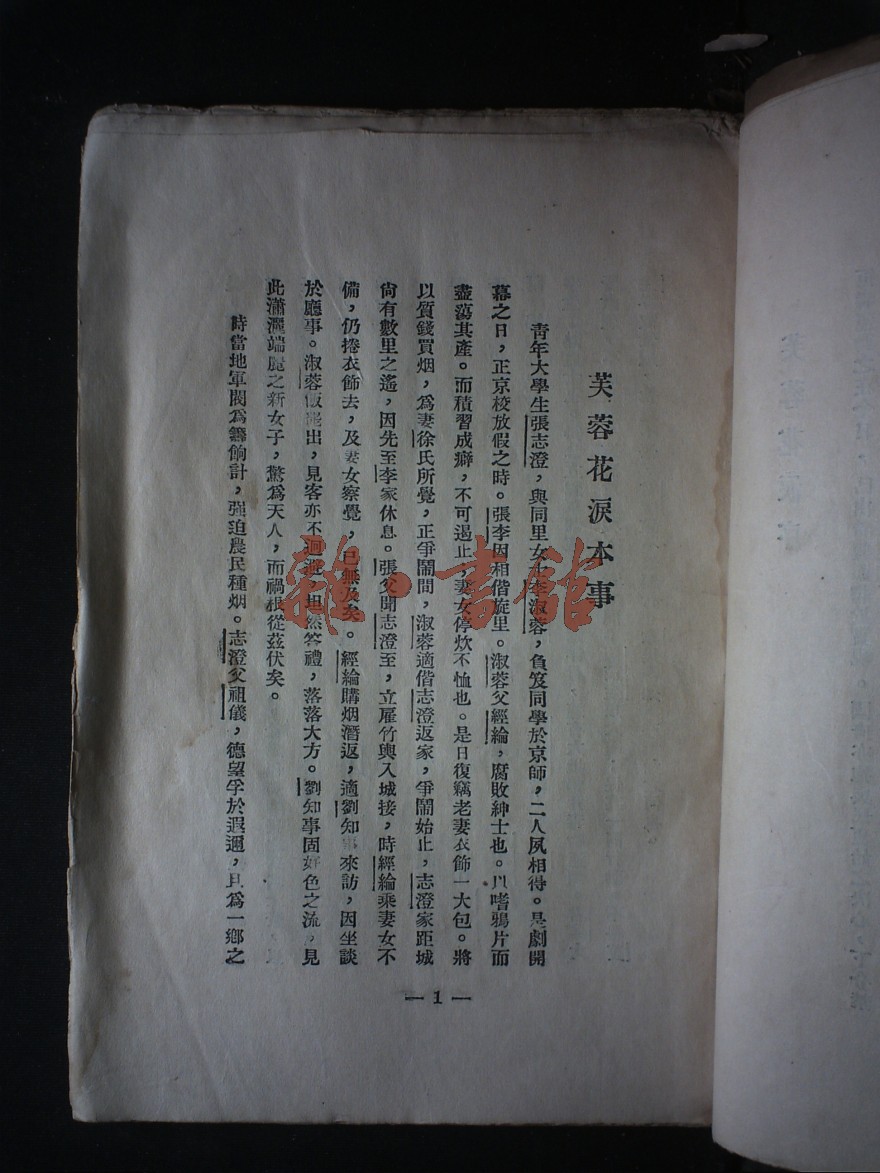 芙蓉花淚本事
青年大學生張志澄，與同里女士李淑蓉，負笈同學於京師，二人夙相得。是劇開
幕之日，正京校放假之時。張李因相偕旋里。淑蓉父經綸，腐敗紳士也。以嗜鴉片而
盡蕩其產。而積習成癖，不可遏止，妻女停炊不恤也。是日復竊老妻衣飾一大包。將
以質錢買烟，為妻徐氏所覺，正爭鬧間，淑蓉適偕志澄返家，爭鬧始止，志澄家距城
尙有數里之遙，因先至李家休息。張父聞志澄至，立雇竹輿入城接，時經綸乘妻女不
備，仍捲衣飾去，及妻女察覺，已無及矣。經綸購烟潛返，適劉知事來訪，因坐談
於廳事。淑蓉出，見客亦不迴避，坦然答禮，落落大方。劉知事固好色之流，見
此瀟灑端麗之新女子，驚為天人，而禍根從茲伏矣。
時當地軍閥為籌餉計，强迫農民種烟。志澄父祖儀，德望孚於遐邇，且為一鄉之
— 1 —
雜·書館